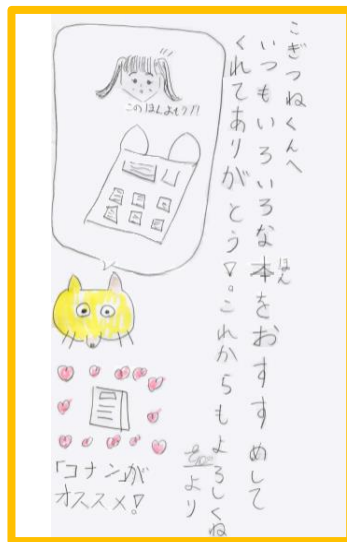 こぎつねくんへ
いつもいろいろな本をおすすめして
ほん
くれてありがとう♡。これからもよろしくね
より
このほんよもう!!
「コナン」が
オススメ!